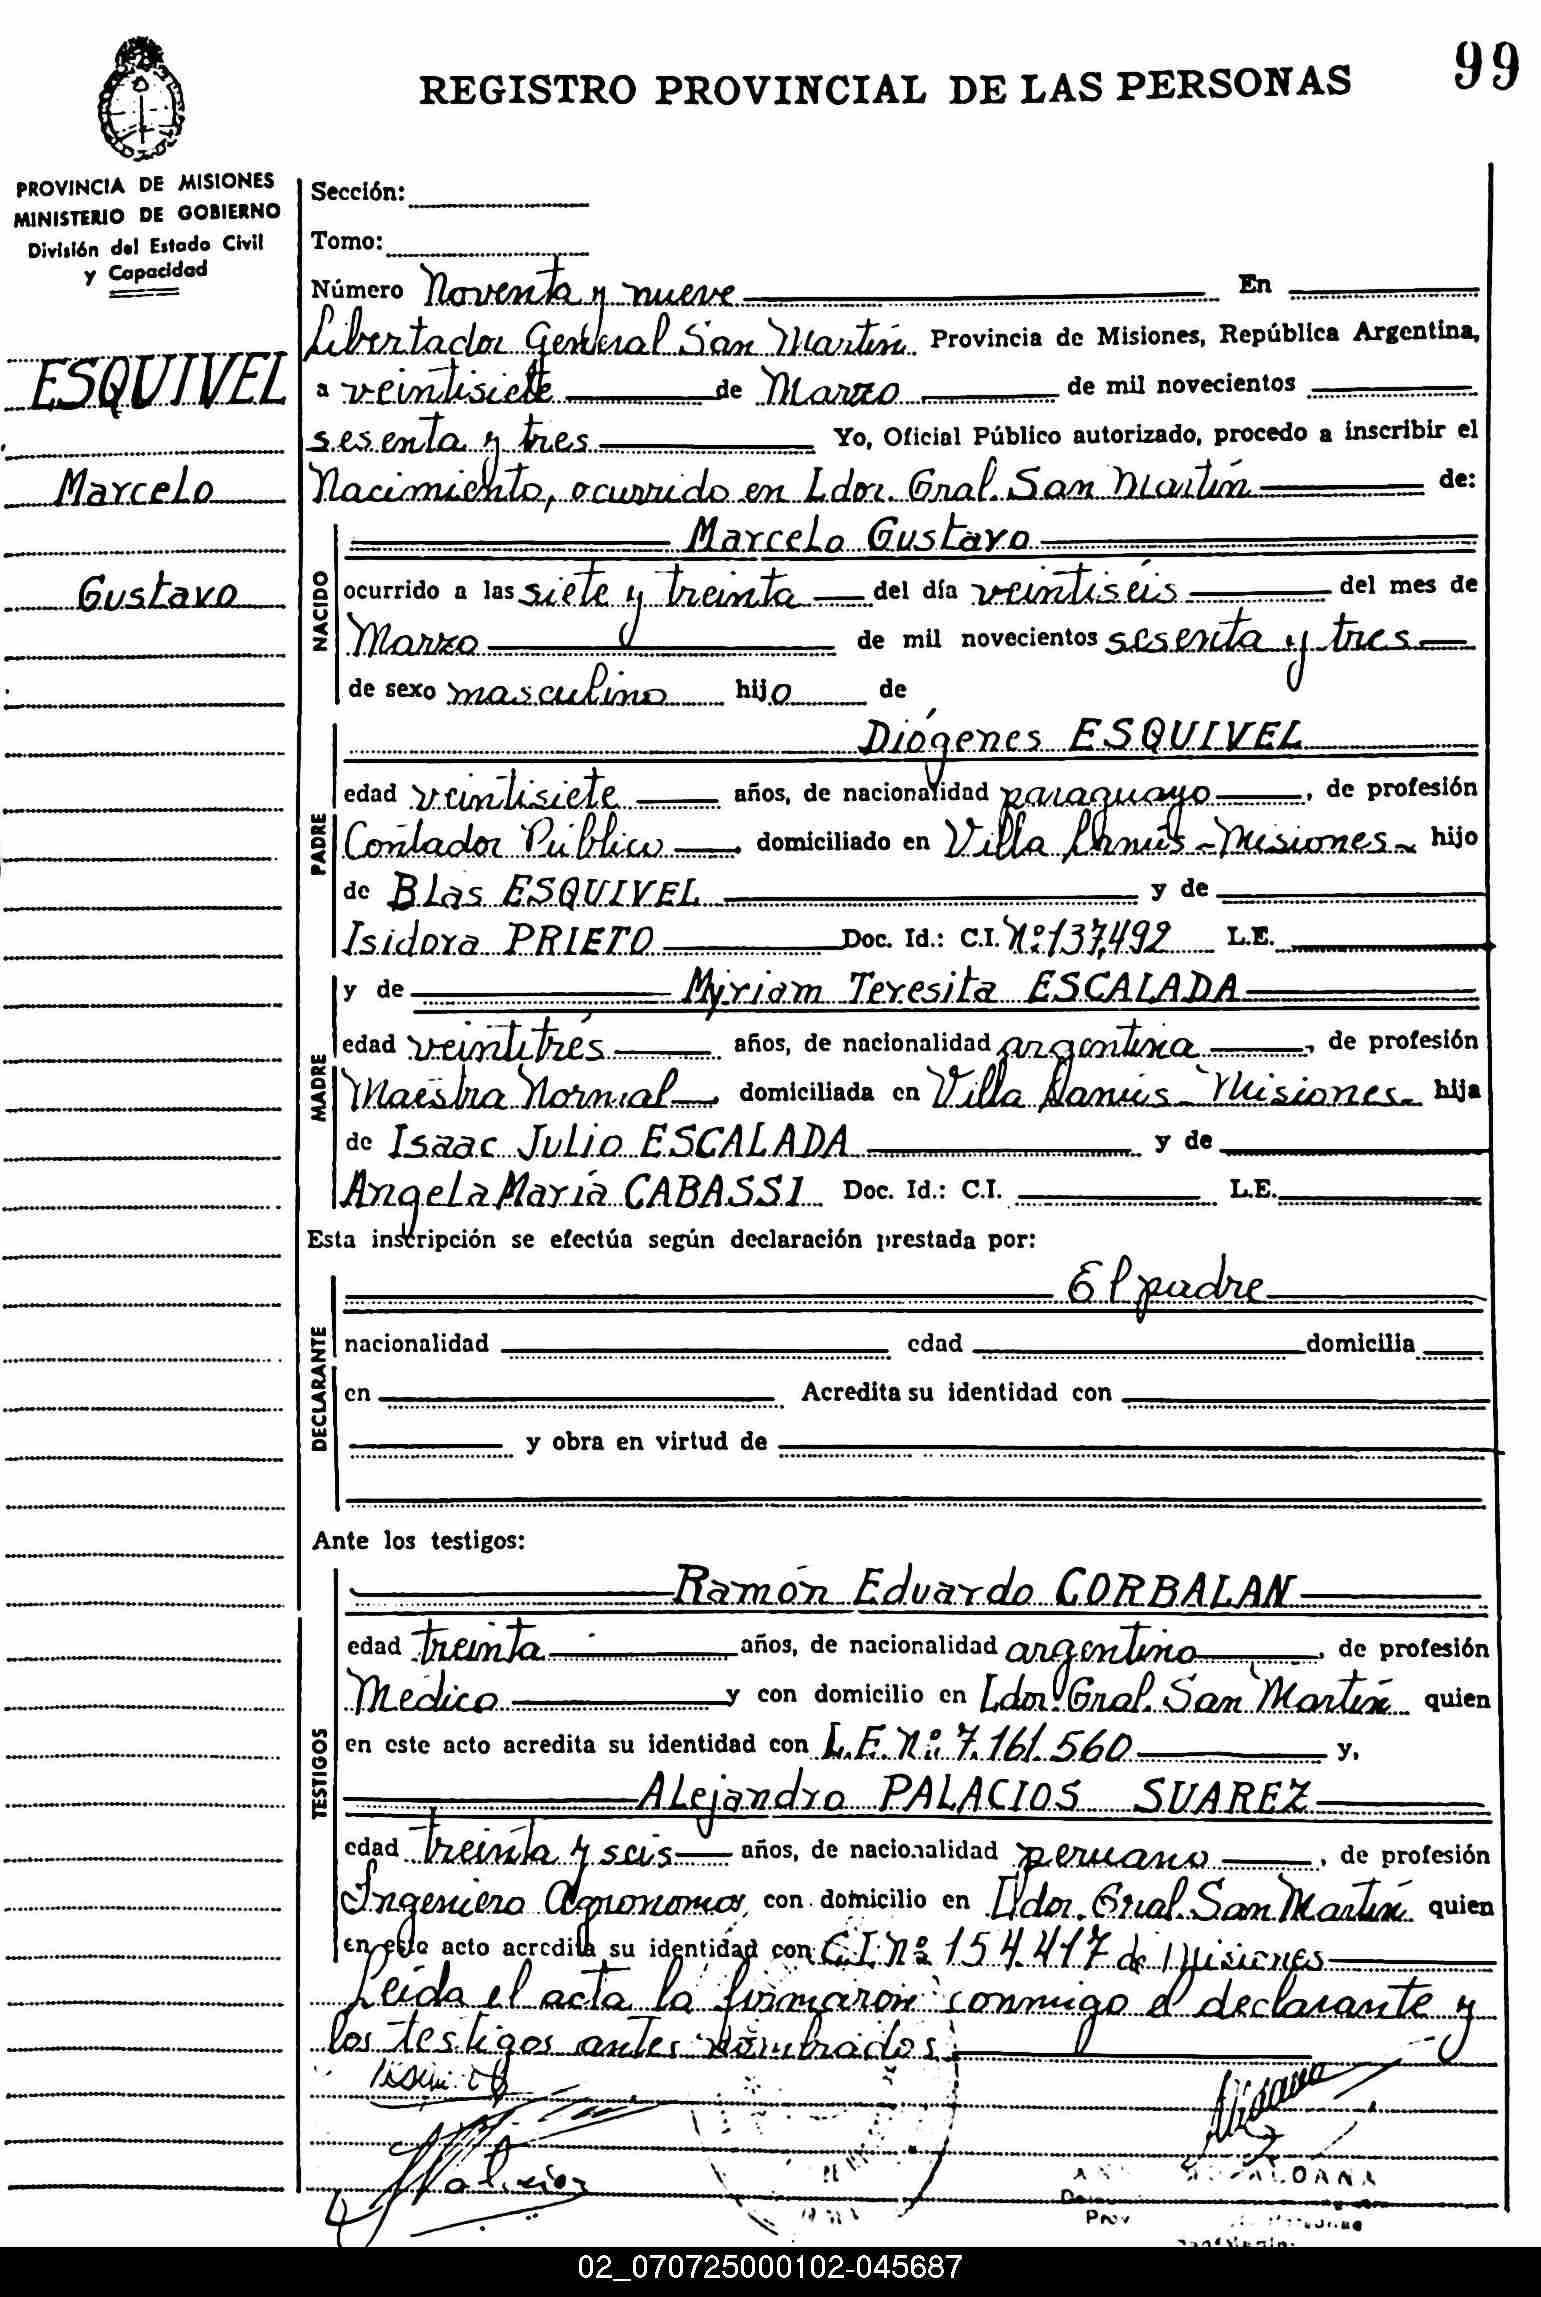 99
REGISTRO PROVINCIAL DE LAS PERSONAS
PROVINCIA DE MISIONES
MINISTERIO DE GOBIERNO
División del Estado Civil
y Capacidad
ESQUIVEL
Marcelo
Gustavo
Sección:
Tomo:
Número Noventa y nueve En
Libertador General San Martín Provincia de Misiones, República Argentina,
a veintisiete de Marzo de mil novecientos
sesenta y tres Yo, Oficial Público autorizado, procedo a inscribir el
Nacimiento, ocurrido en Ldor. Gral. San Martín de:
NACIDO
Marcelo Gustavo
ocurrido a las siete y treinta del día veintiséis del mes de
Marzo de mil novecientos sesenta y tres
de sexo masculino hijo de
PADRE
Diógenes ESQUIVEL
edad veintisiete años, de nacionalidad paraguayo, de profesión
Contador Público, domiciliado en Villa Lanús - Misiones - hijo
de Blas ESQUIVEL y de
Isidora PRIETO Doc. Id.: C.I. Nº 137.492 L.E.
MADRE
y de Myriam Teresita ESCALADA
edad veintitrés años, de nacionalidad argentina, de profesión
Maestra Normal, domiciliada en Villa Lanús - Misiones - hija
de Isaac Julio ESCALADA y de
Angela María CABASSI Doc. Id.: C.I. L.E.
Esta inscripción se efectúa según declaración prestada por:
DECLARANTE
El padre
nacionalidad edad domicilia
en Acredita su identidad con
y obra en virtud de
Ante los testigos:
TESTIGOS
Ramón Eduardo CORBALAN
edad treinta años, de nacionalidad argentino, de profesión
Médico y con domicilio en Ldor. Gral. San Martín quien
en este acto acredita su identidad con L.E. Nº 7.161.560 y,
Alejandro PALACIOS SUAREZ
edad treinta y seis años, de nacionalidad peruano, de profesión
Ingeniero Agronomo y con domicilio en Ldor. Gral. San Martín quien
en este acto acredita su identidad con C.I. Nº 154.417 de Misiones
Leída el acta la firmaron conmigo el declarante y
los testigos antes nombrados.
02_070725000102-045687